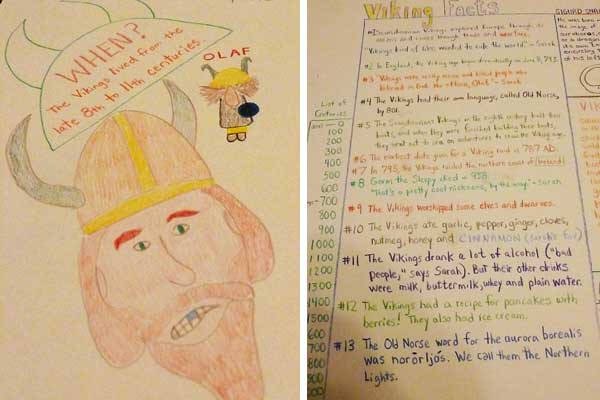 WHEN?
The Vikings lived from the
late 8th to 11th centuries.
OLAF
Viking Facts
#1 Scandinavian Vikings explored Europe through its
oceans and rivers through trade and warfare.
"Vikings kind of like wanted to rule the world." - Sarah
#2 In England, the Viking age began dramatically on June 8, 793
#3 "Vikings were really mean and killed people who
believed in God.
#4 The Vikings had their own language, called Old Norse,
by 801.
#5 The Scandinavian Vikings in the eighth century built their
boats, and when they were finished building their boats,
they went out to sea on adventures to the Viking Age.
#6 The earliest date given for a Viking raid is 787 AD.
#7 In 795, the Vikings raided the northern coast of Ireland.
#8 Gorm the Sleepy died in 958.
"That's a pretty cool nickname, by the way." - Sarah
#9 The Vikings worshipped some elves and dwarves.
#10 The Vikings ate garlic, pepper, ginger, cloves,
nutmeg, honey and CINNAMON (Sarah's fav)
#11 The Vikings drank a lot of alcohol ("bad
people," says Sarah). But their other drinks
were milk, buttermilk, whey and plain water.
#12 The Vikings had a recipe for pancakes with
berries! They also had ice cream.
#13 The Old Norse word for the aurora borealis
was norðrljós. We call them the Northern
Lights.
List of
Centuries
0
100
200
300
400
500
600
700
800
900
1000
1100
1200
1300
1400
1500
600
700
800
SIGURD SNA
He was born
the image of
or a dragon
its own
encircling
of his left
VIK